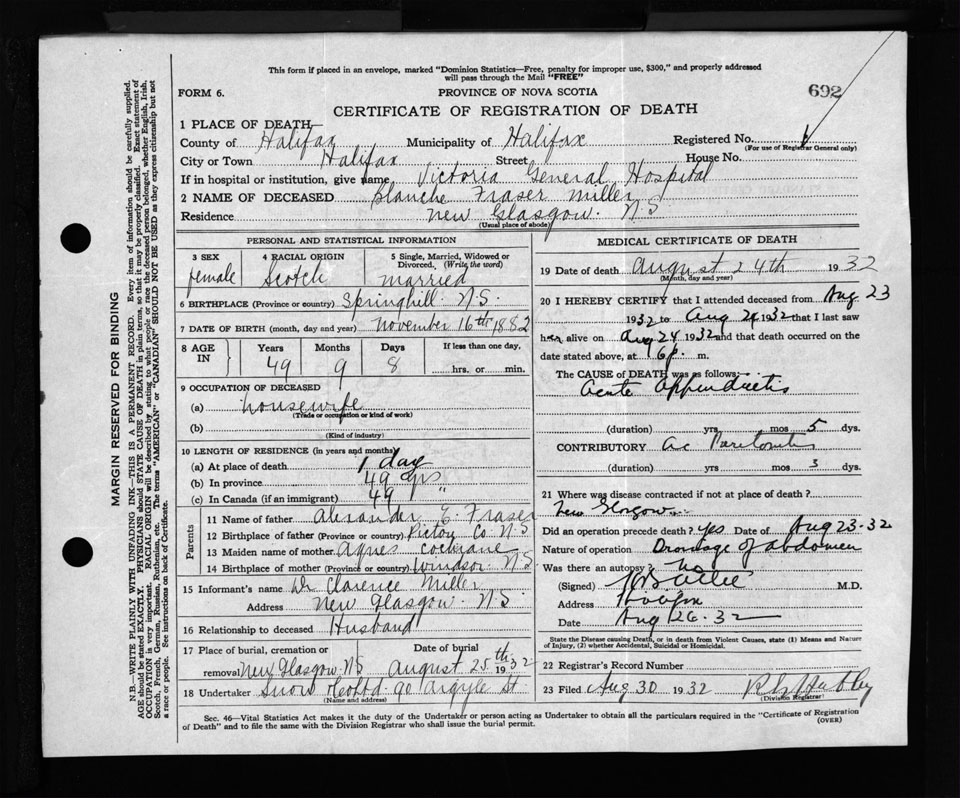 This form if placed in an envelope, marked "Dominion Statistics—Free, penalty for improper use, $300," and properly addressed
will pass through the Mail "FREE"
FORM 6.
PROVINCE OF NOVA SCOTIA
692
CERTIFICATE OF REGISTRATION OF DEATH
1 PLACE OF DEATH
County of Halifax Municipality of Halifax Registered No.
(For use of Registrar General only)
City or Town Halifax Street House No.
If in hospital or institution, give name Victoria General Hospital
2 NAME OF DECEASED Blanche Fraser Miller
Residence New Glasgow. N S
(Usual place of abode)
PERSONAL AND STATISTICAL INFORMATION
3 SEX 4 RACIAL ORIGIN 5 Single, Married, Widowed or
Divorced. (Write the word)
female Scotch married
6 BIRTHPLACE (Province or country) Springhill N.S.
7 DATE OF BIRTH (month, day and year) November 16th 1882
8 AGE IN Years Months Days If less than one day,
49 9 8 hrs. or min.
9 OCCUPATION OF DECEASED
(a) housewife
(Trade or occupation or kind of work)
(b)
(Kind of industry)
10 LENGTH OF RESIDENCE (in years and months)
(a) At place of death 1 day
(b) In province 49 yrs
(c) In Canada (if an immigrant) 49 "
Parents
11 Name of father Alexander E. Fraser
12 Birthplace of father (Province or country) Pictou Co N.S
13 Maiden name of mother Agnes Cochrane
14 Birthplace of mother (Province or country) Windsor N.S
15 Informant's name Dr Clarence Miller
Address New Glasgow. N.S.
16 Relationship to deceased Husband
17 Place of burial, cremation or Date of burial
removal New Glasgow NS August 25th 1932
18 Undertaker Snow & Co Ltd. 90 Argyle St
(Name and address)
MEDICAL CERTIFICATE OF DEATH
19 Date of death August 24th 1932
(Month, day and year)
20 I HEREBY CERTIFY that I attended deceased from Aug 23
1932 to Aug 24 1932 that I last saw
her alive on Aug 24 1932 and that death occurred on the
date stated above, at 6 p. m.
The CAUSE of DEATH was as follows:
Acute Appendicitis
(duration) yrs mos 5 dys.
CONTRIBUTORY Ac Peritonitis
(duration) yrs mos 3 dys.
21 Where was disease contracted if not at place of death?
New Glasgow
Did an operation precede death? Yes Date of Aug 23-32
Nature of operation Drainage of abdomen
Was there an autopsy? No
(Signed) M.D.
Address Halifax
Date Aug 26.32
State the Disease causing Death, or in death from Violent Causes, state (1) Means and Nature
of Injury, (2) whether Accidental, Suicidal or Homicidal.
22 Registrar's Record Number
23 Filed Aug 30 1932
(Division Registrar)
Sec. 46—Vital Statistics Act makes it the duty of the Undertaker or person acting as Undertaker to obtain all the particulars required in the "Certificate of Registration
of Death" and to file the same with the Division Registrar who shall issue the burial permit.
(OVER)
MARGIN RESERVED FOR BINDING
N.B.—WRITE PLAINLY WITH UNFADING INK—THIS IS A PERMANENT RECORD. Every item of information should be carefully supplied.
AGE should be stated EXACTLY. PHYSICIANS should STATE CAUSE OF DEATH in plain terms, so that it may be properly classified. Exact statement of
OCCUPATION is very important. RACIAL ORIGIN will be described by stating to what people or race the deceased person belonged, whether English, Irish,
Scotch, French, German, Russian, Ruthenian, etc. The terms "AMERICAN" or "CANADIAN" SHOULD NOT BE USED as they express citizenship but not
a race or people. See instructions on back of Certificate.